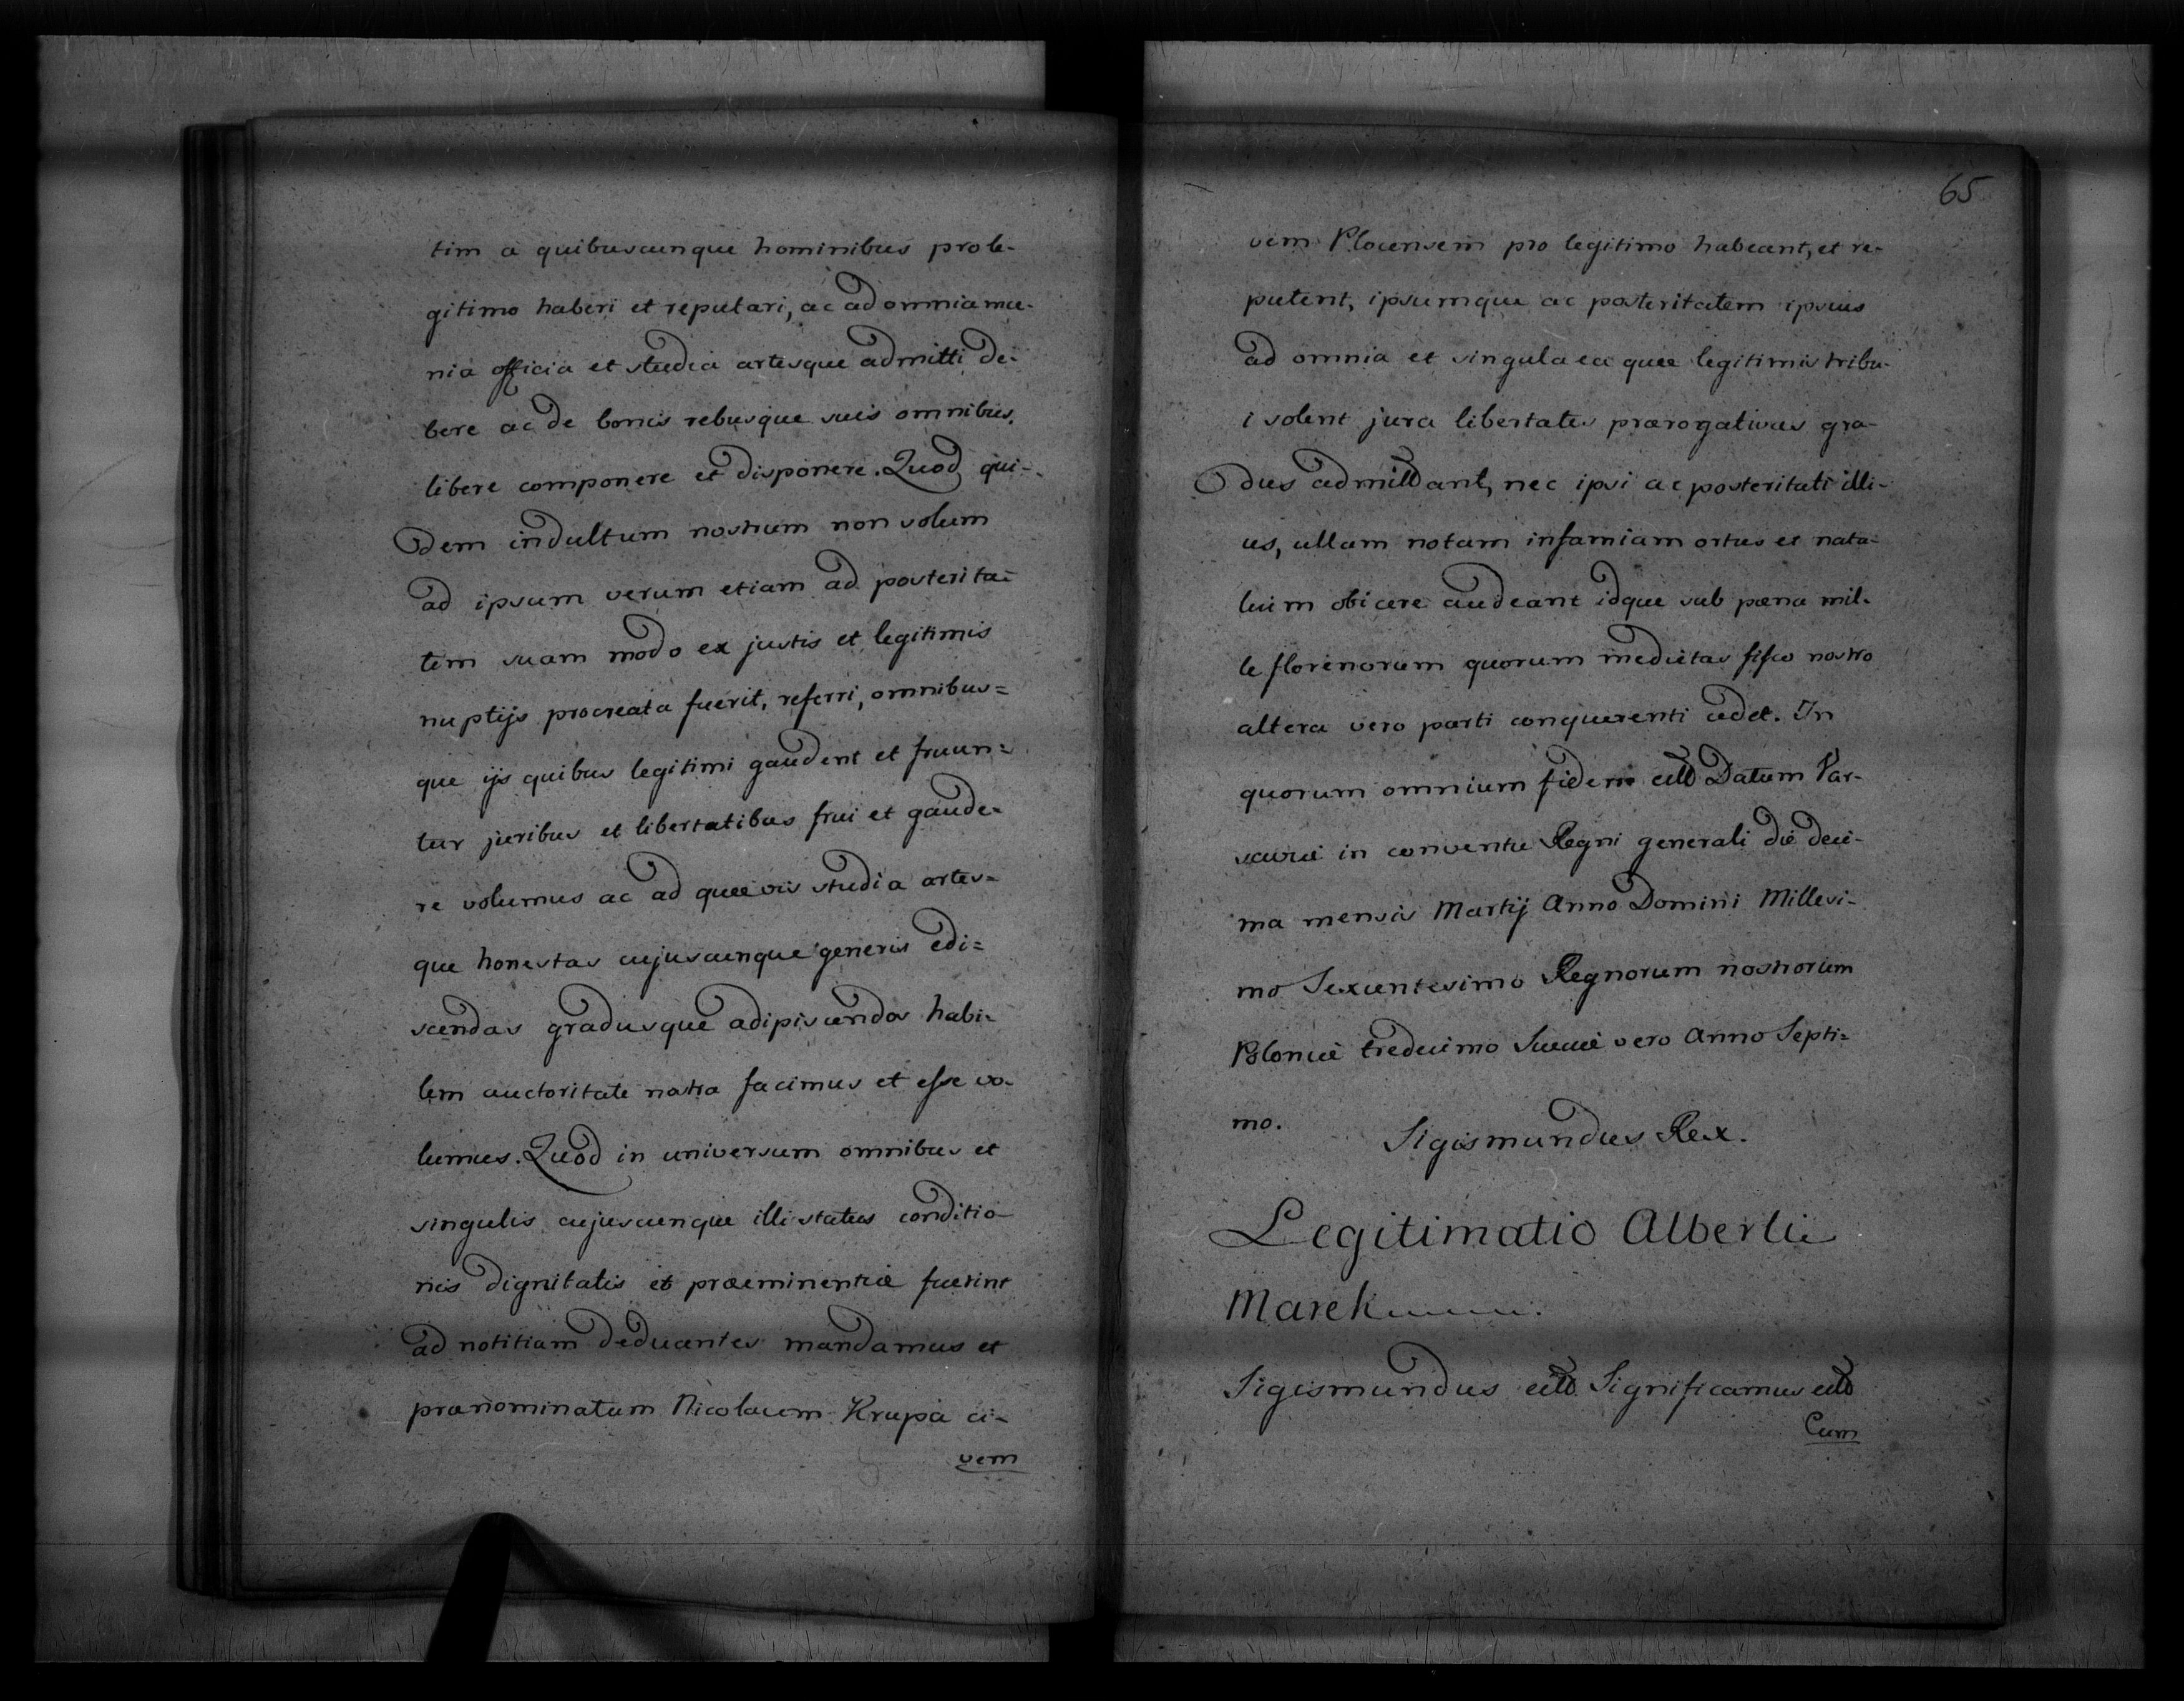 tim a quibuscunque hominibus pro le-
gitimo haberi et reputari, ac ad omnia mu-
nia officia et studia artesque admitti de-
bere ac de bonis rebusque suis omnibus,
libere componere et disponere. Quod qui-
dem indultum nostrum non solum
ad ipsum verum etiam ad posterita=
tem suam modo ex justis et legitimis
nuptijs procreata fuerit, referri, omnibus=
que ijs quibus legitimi gaudent et fruun=
tur juribus et libertatibus frui et gaude=
re volumus ac ad quævis studia artes=
que honestas cujuscunque generis edi=
scendas gradusque adipiscendos habi-
lem auctoritate nostra facimus et esse vo-
lumus. Quod in universum omnibus et
singulis cujuscunque illi status conditio-
nis dignitatis et præeminentiæ fuerint
ad notitiam deducentes mandamus et
prænominatum Nicolaum Krupa ci-
vem
65
vem Plocensem pro legitimo habeant, et re-
putent, ipsumque ac posteritatem ipsius
ad omnia et singula ea quæ legitimis tribu-
i solent jura libertates prærogativas gra-
dus admittant, nec ipsi ac posteritati illi-
us, ullam notam infamiam ortus et nata=
lium obicere audeant idque sub pæna mil-
le florenorum quorum medietas fisco nostro
altera vero parti conquerenti cedet. In
quorum omnium fidem etc Datum Var-
saviæ in conventu Regni generali die deci-
ma mensis Martij Anno Domini Millesi-
mo Sexcentesimo Regnorum nostrorum
Poloniæ tredecimo Sueciæ vero Anno Septi=
mo.
Sigismundus Rex.
Legitimatio Alberti
Marek
Sigismundus etc Significamus etc
Cum